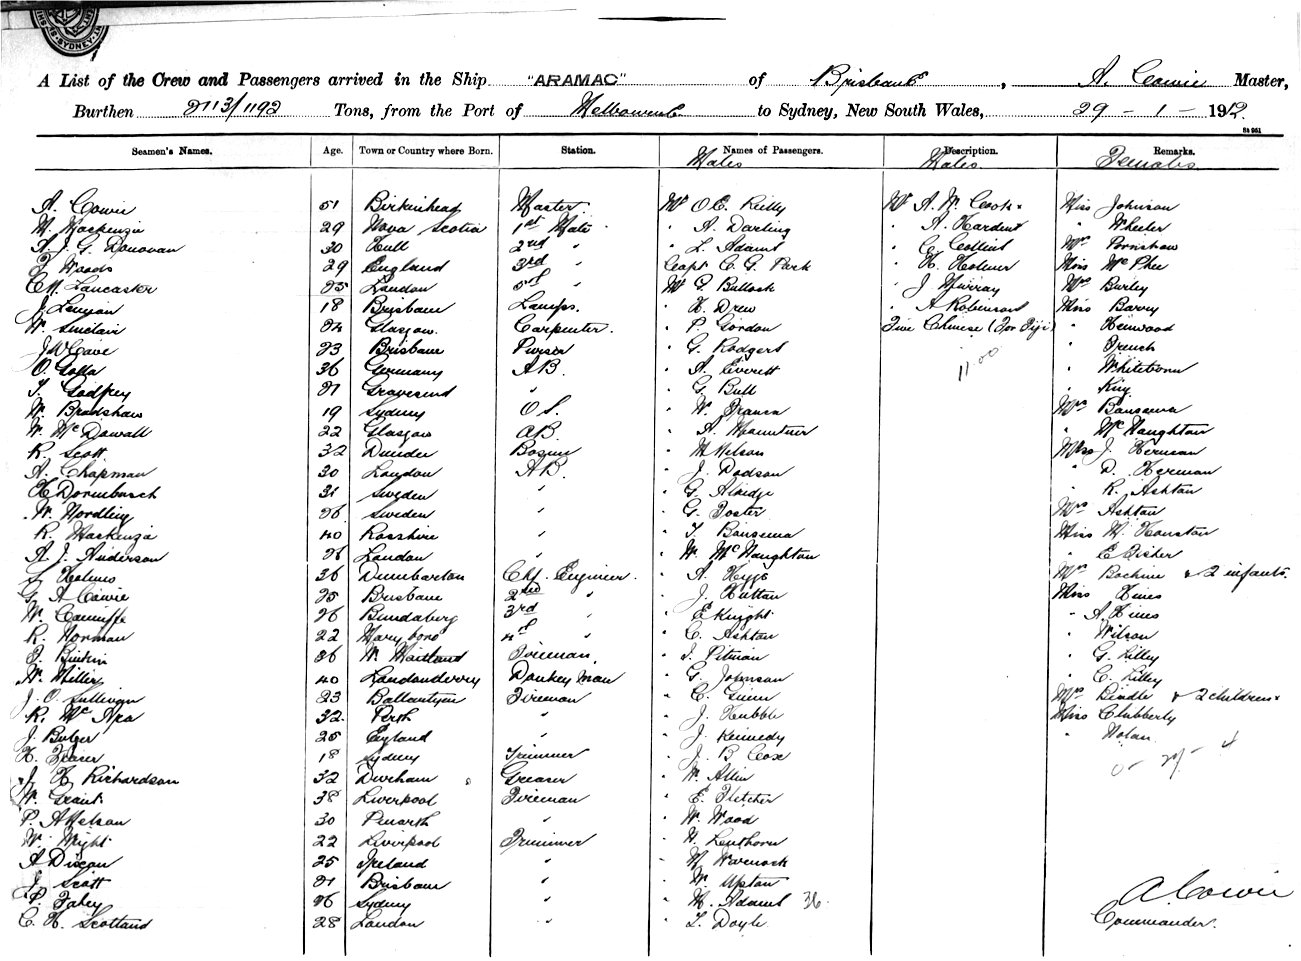 SYDNEY
A List of the Crew and Passengers arrived in the Ship "ARAMAC" of Brisbane, A. Cowie Master,
Burthen 2113/1192 Tons, from the Port of Melbourne to Sydney, New South Wales, 29 - 1 - 1912.
St 951
Seamen's Names. Age. Town or Country where Born. Station. Names of Passengers. Description. Remarks.
Males Males Females
A. Cowie 51 Birkenhead Master Mr O'C. Reilly Mr A. W. Cook Miss Johnson
M. Mackenzie 29 Nova Scotia 1st Mate " A. Darling " A. Hardent " Wheeler
A. J. G. Donovan 30 Hull 2nd " " L. Adams " Collins Mrs
F. Woods 29 England 3rd " Capt C. G. Park " H. Holmer Miss McPhee
C. W. Lancaster 25 London " Mr G. Bullock " J. Murray Mrs Burley
J. Lennon 18 Brisbane Lamps. " H. Drew " A Robinson Miss Barry
W. Sinclair 24 Glasgow. Carpenter. " P. Gordon Five Chinese (For Fiji) " Henwood
J W Cave 23 Brisbane Purser " G. Rodgers " French
O. Golla 36 Germany AB. " A. Everett " Whitebourn
T. Godfrey 21 Gravesend " " G. Bull " King
W. Bradshaw 19 Sydney O S. " W. Franca Mrs Bansema
W. McDowall 22 Glasgow AB. " A. Mountner " McNaughton
R. Scott 32 Dundee Bosun " M Nelson Miss J. Herman
A. Chapman 30 London AB. " J. Dodson " D. Herman
H Dornbusch 31 Sweden " " G. Alridge " R. Ashton
W. Nordling 26 Sweden " " G. Foster Mrs Ashton
R. Mackenzie 40 Rosshire " " T. Bansema Miss M. Houston
A. J. Anderson 26 London " " W. McNaughton " E Fisher
Holmes 36 Dumbarton Chf. Engineer. " A. Hyge Mrs Bochine & 2 infants.
G A Cowie 25 Brisbane 2nd " " J. Hutton Miss Hines
W. Cauniffe 26 Bundaberg 3rd " E Knight " A. Hines
R. Norman 22 Maryboro " " C. Ashton " Wilson
36 W. Maitland Fireman. " J. Pitman " G. Lilley
W. Miller 40 Londonderry Donkey man " G. Johnson " C. Lilley
J. O. Sullivan 23 Fireman " C. Mrs Rindle & 2 children
R. 32. Perth " " J. Hubble Miss Clubberly
J. Bulger 25 England " " J. Kennedy " Nolan
H. Fraser 18 Sydney Trimmer " J. B. Cox
J. H. Richardson 32 Durham Greaser " W. Allin
W. Grant 38 Liverpool Fireman " E. Fletcher
P. A Nelson 30 Penarth " " W. Wood
W. Wright 22 Liverpool Trimmer " H. Lenthorn
A Duncan 25 Ireland " " M Warnock
J. Scott 21 Brisbane " " W. Upton
P. Fahey 26 Sydney " " H. Adams 36
C. H. Scotland 28 London " " L. Doyle
A. Cowie
Commander.